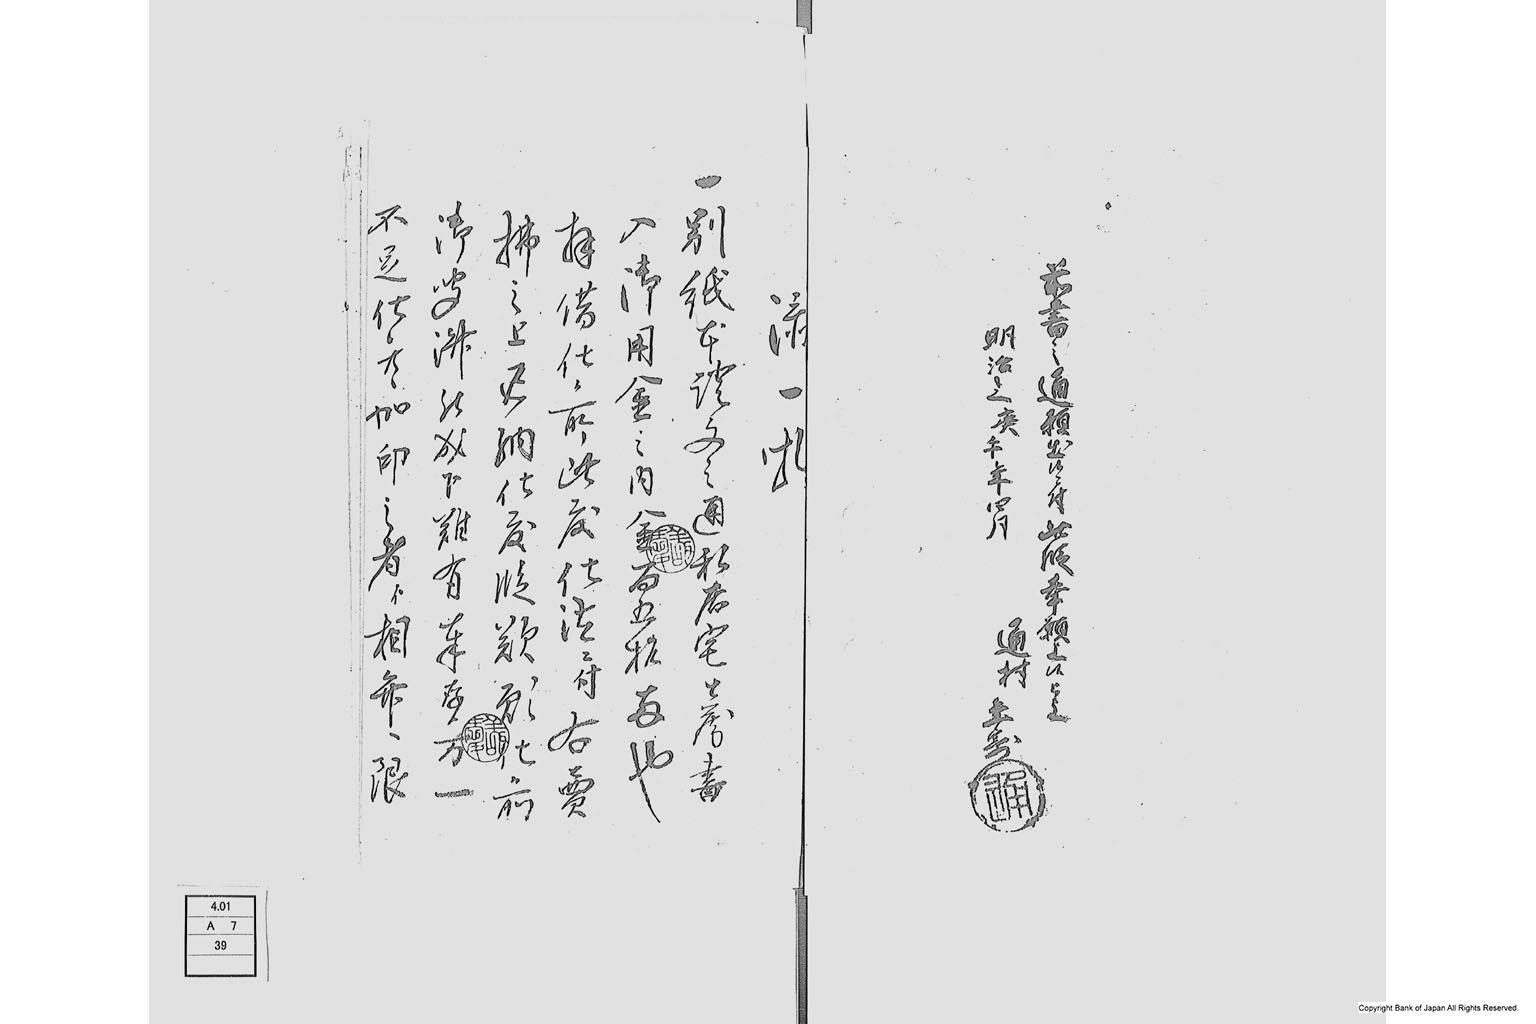 前書之通願出候ニ付此段奉願上候已上
明治三庚午年四月
通村
添一札
一別紙本證文之通私居宅書
入御用金之内金百五拾両也
拝借仕候所此度仕法ニ付右賣
拂之上返納仕度段歎願仕候所
御聞済被成下難有奉存万一
不足仕候ハヽ加印之者相弁限
4.01
A 7
39
Copyright Bank of Japan All Rights Reserved.